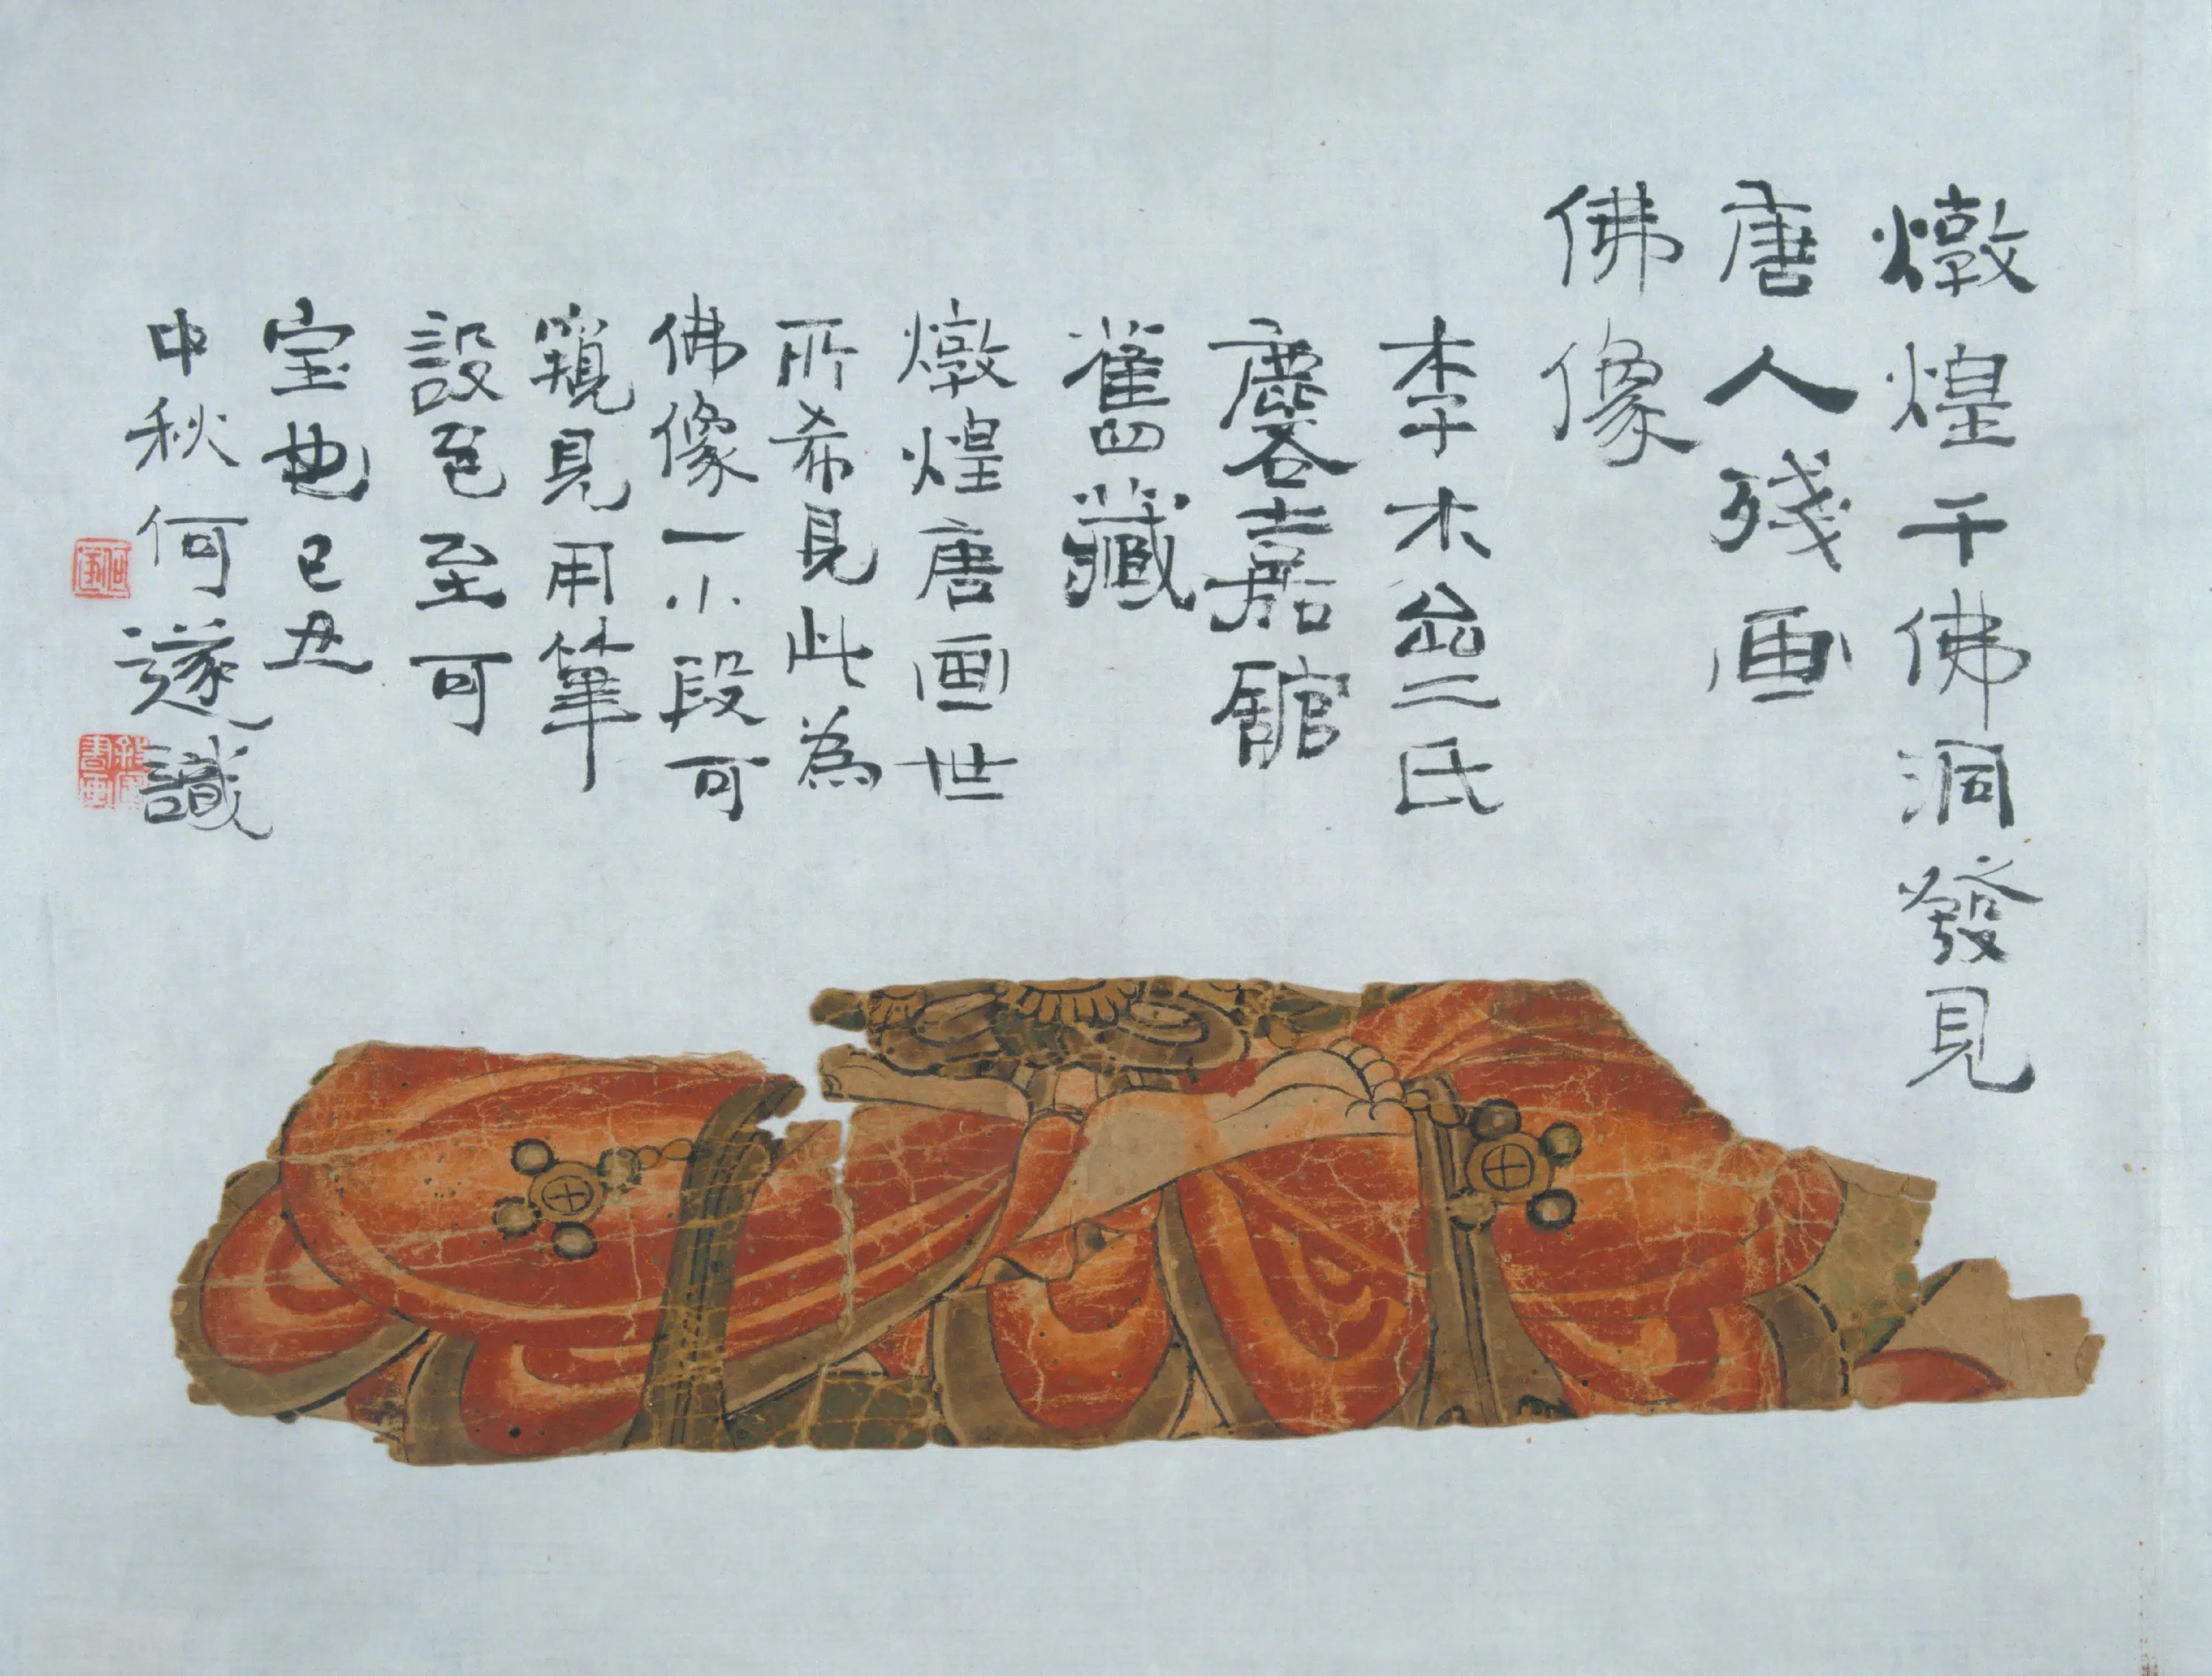 燉煌千佛洞發見
唐人殘画
佛像
李木齋氏
麐嘉館
舊藏
燉煌唐画世
所希見此為
佛像一小段可
窺見用筆
設色至可
宝也己丑
中秋何遂識
何遂